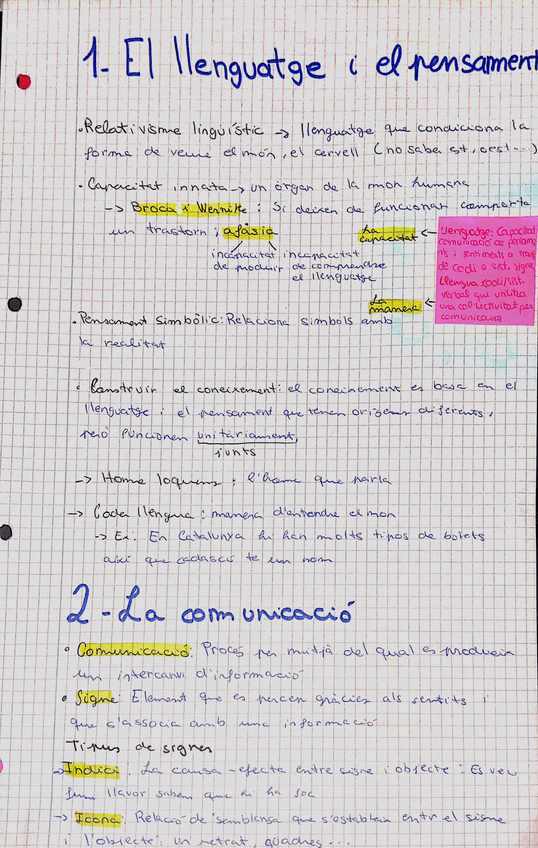 1. El llenguatge i el pensament
• Relativisme lingüístic → llenguatge que condiciona la
forma de veure el món, el cervell (no saber est, oest...)
• Capacitat innata → un òrgan de la ment humana
→ Broca i Wernike: Si deixen de funcionar comporta
un trastorn: afàsia
incapacitat de produir
incapacitat de comprendre el llenguatge
La capacitat ←
Llenguatge: Capacitat
comunicació de pensame
nts i sentiments a través
de codi o sist. signes
La manera ←
Llengua: codi/sist.
verbal que utilitza
una col·lectivitat per
comunicarse
• Pensament Simbòlic: Relaciona simbols amb
la realitat
• Construir el coneixement: el coneixement es basa en el
llenguatge i el pensament que tenen orígens diferents,
però funcionen unitàriament,
junts
→ Homo loquens: l'home que parla
→ Cada llengua: manera d'entendre el mon
→ Ex: En Catalunya hi han molts tipos de bolets
així que cadascú te un nom
2 - La comunicació
• Comunicació: Procés per mitjà del qual es produeix
un intercanvi d'informació
• Signe: Element que es percep gràcies als sentits i
que s'associa amb una informació
Tipus de signes
→ Indici: La causa-efecte entre signe i objecte: Es veu
fum llavor sabem que hi ha foc
→ Icona: Relació de semblança que s'estableix entre el signe
i l'objecte: un retrat, quadres...